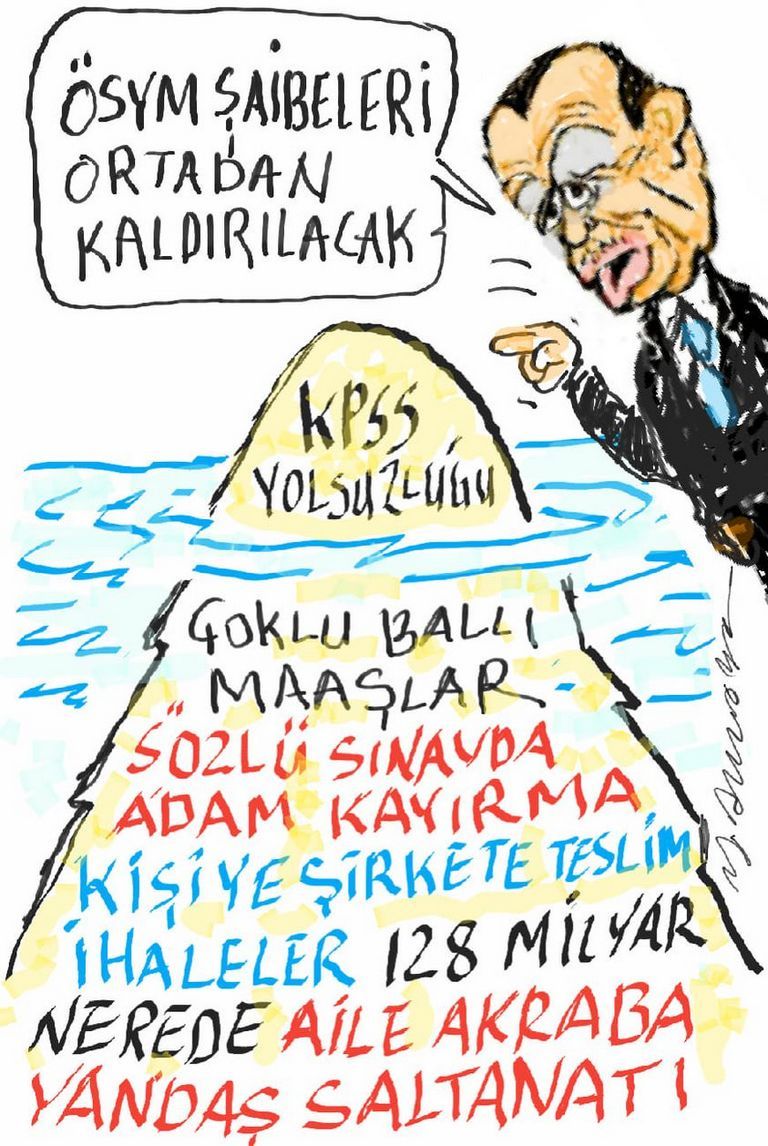 ÖSYM ŞAİBELERİ
ORTADAN
KALDIRILACAK
KPSS
YOLSUZLUĞU
ÇOKLU BALLI
MAAŞLAR
SÖZLÜ SINAVDA
ADAM KAYIRMA
KİŞİYE ŞİRKETE TESLİM
İHALELER 128 MİLYAR
NEREDE AİLE AKRABA
YANDAŞ SALTANATI